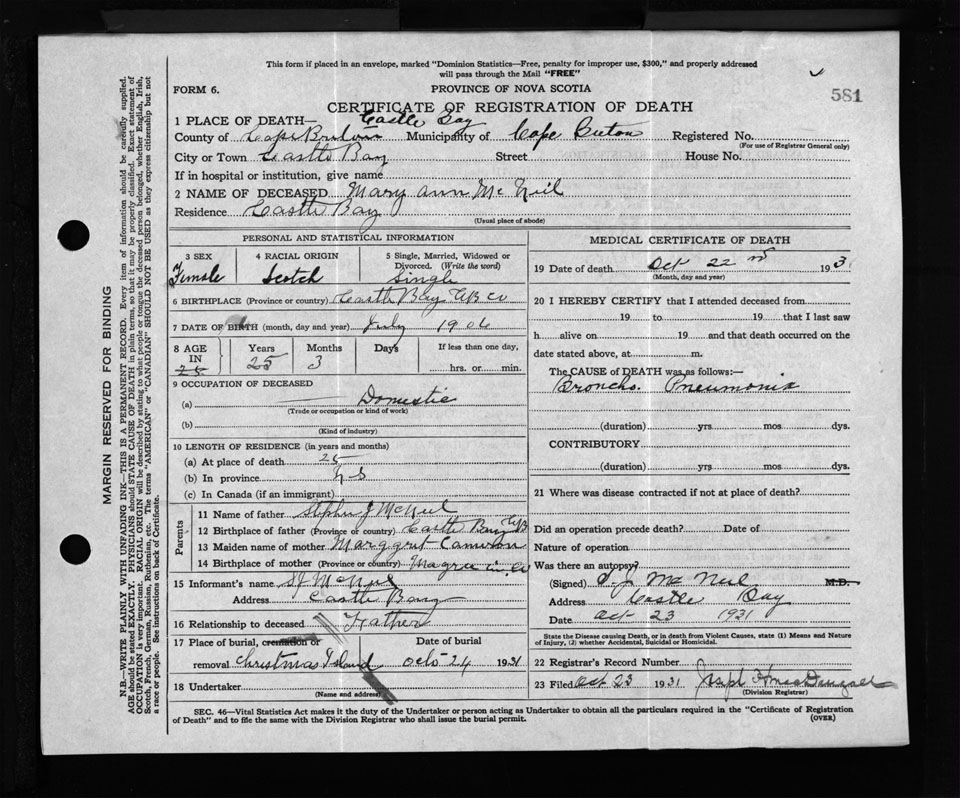 This form if placed in an envelope, marked "Dominion Statistics—Free, penalty for improper use, $300," and properly addressed
will pass through the Mail "FREE"
FORM 6.
PROVINCE OF NOVA SCOTIA
581
CERTIFICATE OF REGISTRATION OF DEATH
1 PLACE OF DEATH— Castle Bay
County of Cape Breton Municipality of Cape Breton Registered No.
(For use of Registrar General only)
City or Town Castle Bay Street House No.
If in hospital or institution, give name
2 NAME OF DECEASED Mary Ann McNeil
Residence Castle Bay
(Usual place of abode)
PERSONAL AND STATISTICAL INFORMATION
3 SEX 4 RACIAL ORIGIN 5 Single, Married, Widowed or
Divorced. (Write the word)
Female Scotch Single
6 BIRTHPLACE (Province or country) Castle Bay CB Co
7 DATE OF BIRTH (month, day and year) July 1906
8 AGE IN 25 Years Months Days If less than one day,
25 3 hrs. or min.
9 OCCUPATION OF DECEASED
(a) Domestic
(Trade or occupation or kind of work)
(b)
(Kind of industry)
10 LENGTH OF RESIDENCE (in years and months)
(a) At place of death 25
(b) In province N S
(c) In Canada (if an immigrant)
Parents
11 Name of father Stephen J McNeil
12 Birthplace of father (Province or country) Castle Bay CB
13 Maiden name of mother Marggret Cameron
14 Birthplace of mother (Province or country) in. Co
15 Informant's name S J McNeil
Address Castle Bay
16 Relationship to deceased Father
17 Place of burial, cremation or Date of burial
removal Christmas Island Octo 24 1931
18 Undertaker
(Name and address)
MEDICAL CERTIFICATE OF DEATH
19 Date of death Oct 22nd 193
(Month, day and year)
20 I HEREBY CERTIFY that I attended deceased from
19 to 19 that I last saw
h alive on 19 and that death occurred on the
date stated above, at m.
The CAUSE of DEATH was as follows:—
Broncho. Pneumonia
(duration) yrs mos dys.
CONTRIBUTORY
(duration) yrs. mos. dys.
21 Where was disease contracted if not at place of death?
Did an operation precede death? Date of
Nature of operation
Was there an autopsy?
(Signed) S. J. McNeil M.D.
Address Castle Bay
Date Oct 23 1931
State the Disease causing Death, or in death from Violent Causes, state (1) Means and Nature
of Injury, (2) whether Accidental, Suicidal or Homicidal.
22 Registrar's Record Number
23 Filed Oct 23 1931 Joseph H MacDougall
(Division Registrar)
SEC. 46—Vital Statistics Act makes it the duty of the Undertaker or person acting as Undertaker to obtain all the particulars required in the "Certificate of Registration
of Death" and to file the same with the Division Registrar who shall issue the burial permit.
(OVER)
MARGIN RESERVED FOR BINDING
N.B.—WRITE PLAINLY WITH UNFADING INK—THIS IS A PERMANENT RECORD. Every item of information should be carefully supplied.
AGE should be stated EXACTLY. PHYSICIANS should STATE CAUSE OF DEATH in plain terms, so that it may be properly classified. Exact statement of
OCCUPATION is very important. RACIAL ORIGIN will be described by stating to what people or tongue the deceased person belonged, whether English, Irish,
Scotch, French, German, Russian, Ruthenian, etc. The terms "AMERICAN" or "CANADIAN" SHOULD NOT BE USED as they express citizenship but not
a race or people. See instructions on back of Certificate.